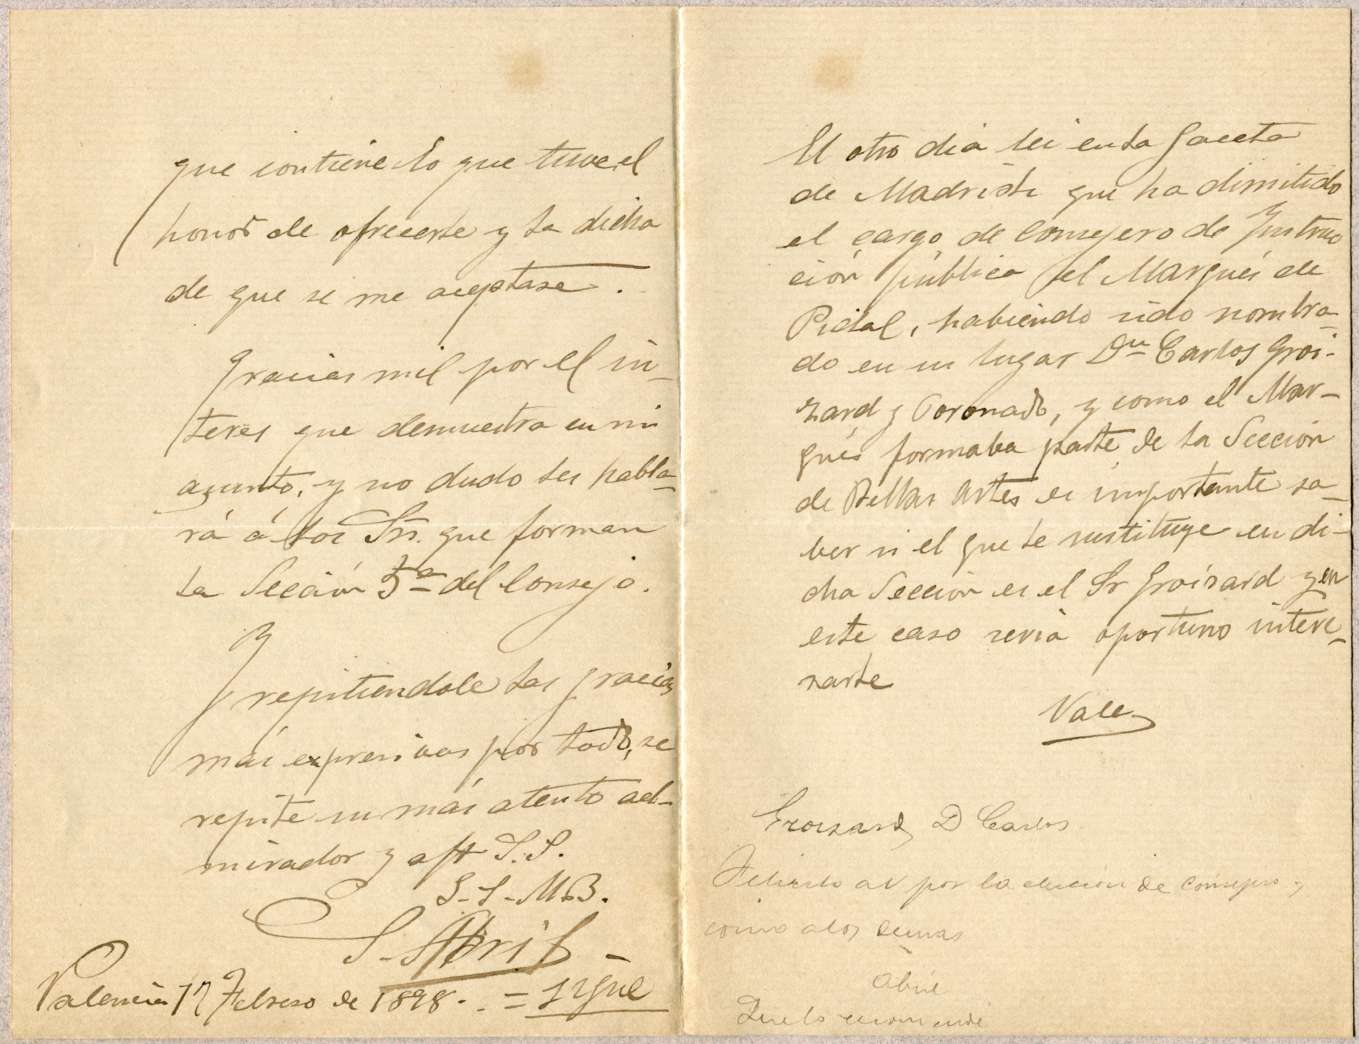 que contiene lo que tuve el
honor de ofrecerle y la dicha
de que se me aceptase.
Gracias mil por el in-
teres que demuestra en mi
asunto, y no dudo les habla-
rá á los Srs. que forman
la Sección 5ª del Consejo.
Y repitiendole las gracias
más expresivas por todo, se
repite su más atento ad-
mirador y aft S.S.
L-L-MB.
S. Abril
Valencia 17 Febrero de 1898.
El otro dia lei en la Gaceta
de Madrid que ha dimitido
el cargo de Consejero de Instruc
ción pública el Marqués de
Pidal, habiendo sido nombra-
do en su lugar Dn Carlos Groi-
zard y Coronado, y como el Mar-
qués formaba parte de la Sección
de Bellas Artes es importante sa-
ber si el que le sustituye en di-
cha Sección es el Sr Groizard y en
este caso seria oportuno intere-
sarle
Vale
Groizard, D Carlos
Felicito a V por la eleccion de consejero y
como a los demas
Que lo recomiende